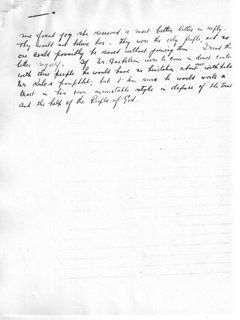 me found joy she received a most bitter letter in reply.
They would not believe her. They were the only people, and no
one could possibly be saved without joining them. I read the
letter myself. If Mr Gockelson were to come in direct contact
with these people he would have no hesitation about withdraw
his pamphlet; but I am sure he would write a
tract in his own inimitable style in defence of the true
and the help of the People of God.